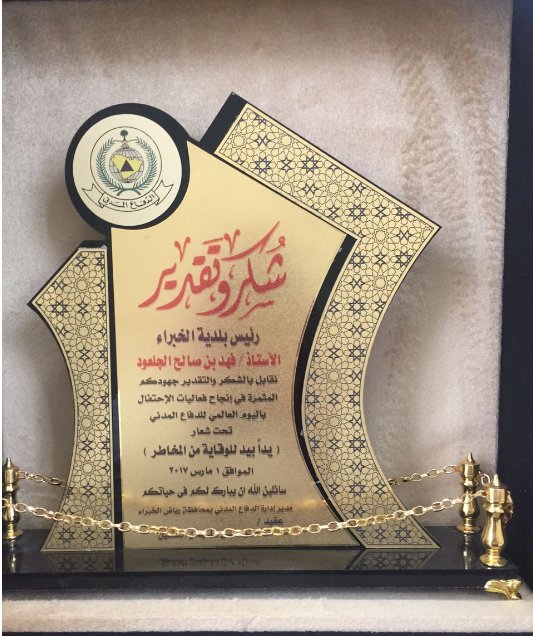 الدفاع المدني
شكر وتقدير
رئيس بلدية الخبراء
الأستاذ / فهد بن صالح الجلعود
نقابل بالشكر والتقدير جهودكم
المثمرة في إنجاح فعاليات الإحتفال
باليوم العالمي للدفاع المدني
تحت شعار
( يداً بيد للوقاية من المخاطر )
الموافق ١ مارس ٢٠١٧
سائلين الله ان يبارك لكم في حياتكم
مدير إدارة الدفاع المدني بمحافظة رياض الخبراء
عقيد /